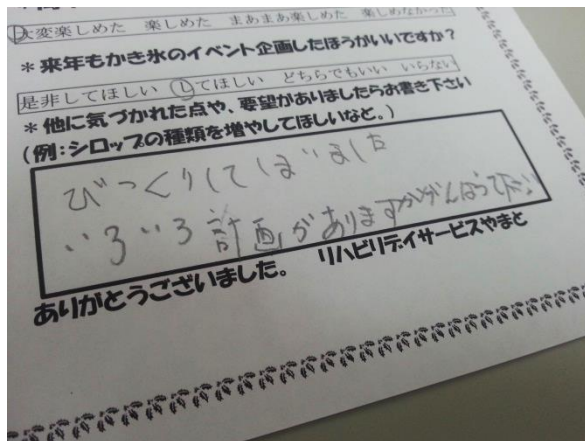 大変楽しめた 楽しめた まあまあ楽しめた 楽しめなかった
*来年もかき氷のイベント企画したほうがいいですか?
是非してほしい してほしい どちらでもいい いらない
*他に気づかれた点や、要望がありましたらお書き下さい
(例:シロップの種類を増やしてほしいなど。)
びっくりしてしまいました
いろいろ計画がありますががんばって下さい
ありがとうございました。 リハビリデイサービスやまと